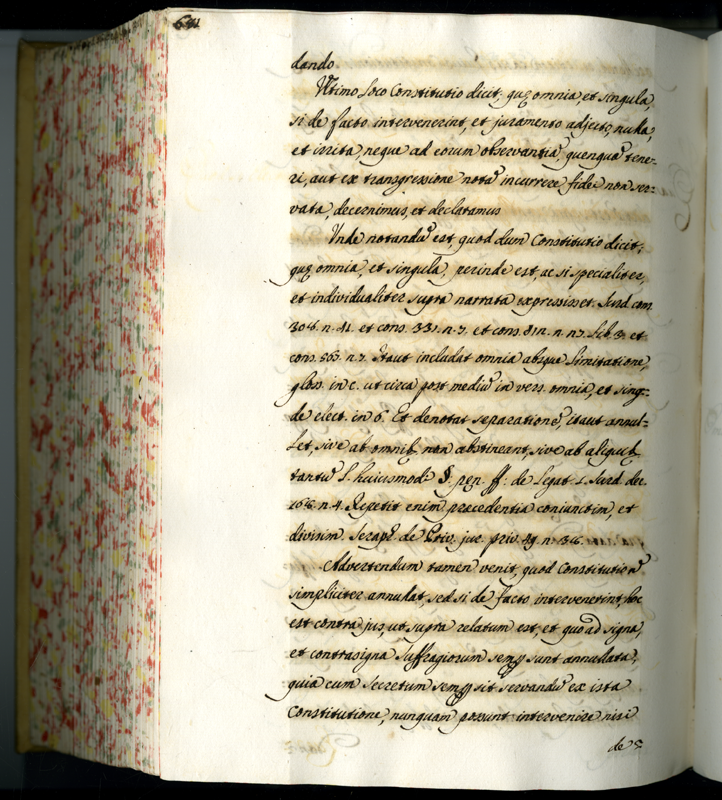 dando
Ultimo loco Constitutio dicit, quę omnia, et singula,
si de facto intervenerint, et juramento adjecto, nulla,
et irrita, neque ad eorum observantiã quenquã tene=
ri, aut ex transgressione notã incurrere fidei non ser=
vatæ, decernimus, et declaramus
Unde notandũ est, quod dum Constitutio dicit,
quę omnia, et singula, perinde est, ac si specialiter,
et individualiter supra narrata expressisset. Surd. con.
306. n. 41. et cons. 331. n. 7. et cons. 812. n. n7. lib. 3. et
cons. 565. n. 7. Itaut includat omnia absque limitatione,
glos. in c. ut circa post mediũ in vers. omnia, et sing=
de elect. in 6. Et denotat separationẽ, itaut annul=
let, sive ab omnib. non abstineant, sive ab aliquib.
tantũ l. huiusmodi §. pen. ff: de legat. 1. Surd. dec.
168. n. 4. Repetit enim præcedentia coniunctim, et
divisim Seraph. de Priv. jur. priv. 49. n. 36.
Advertendum tamen venit, quod Constitutio nõ
simpliciter annulat, sed si de facto intervenerint, hoc
est contra jus, ut supra relatum est, et quo ad signa,
et contrasigna suffragiorum semp sunt annullata,
quia cum Secretum semp sit servandũ ex ista
Constitutione, nunquam possunt intervenire nisi
de